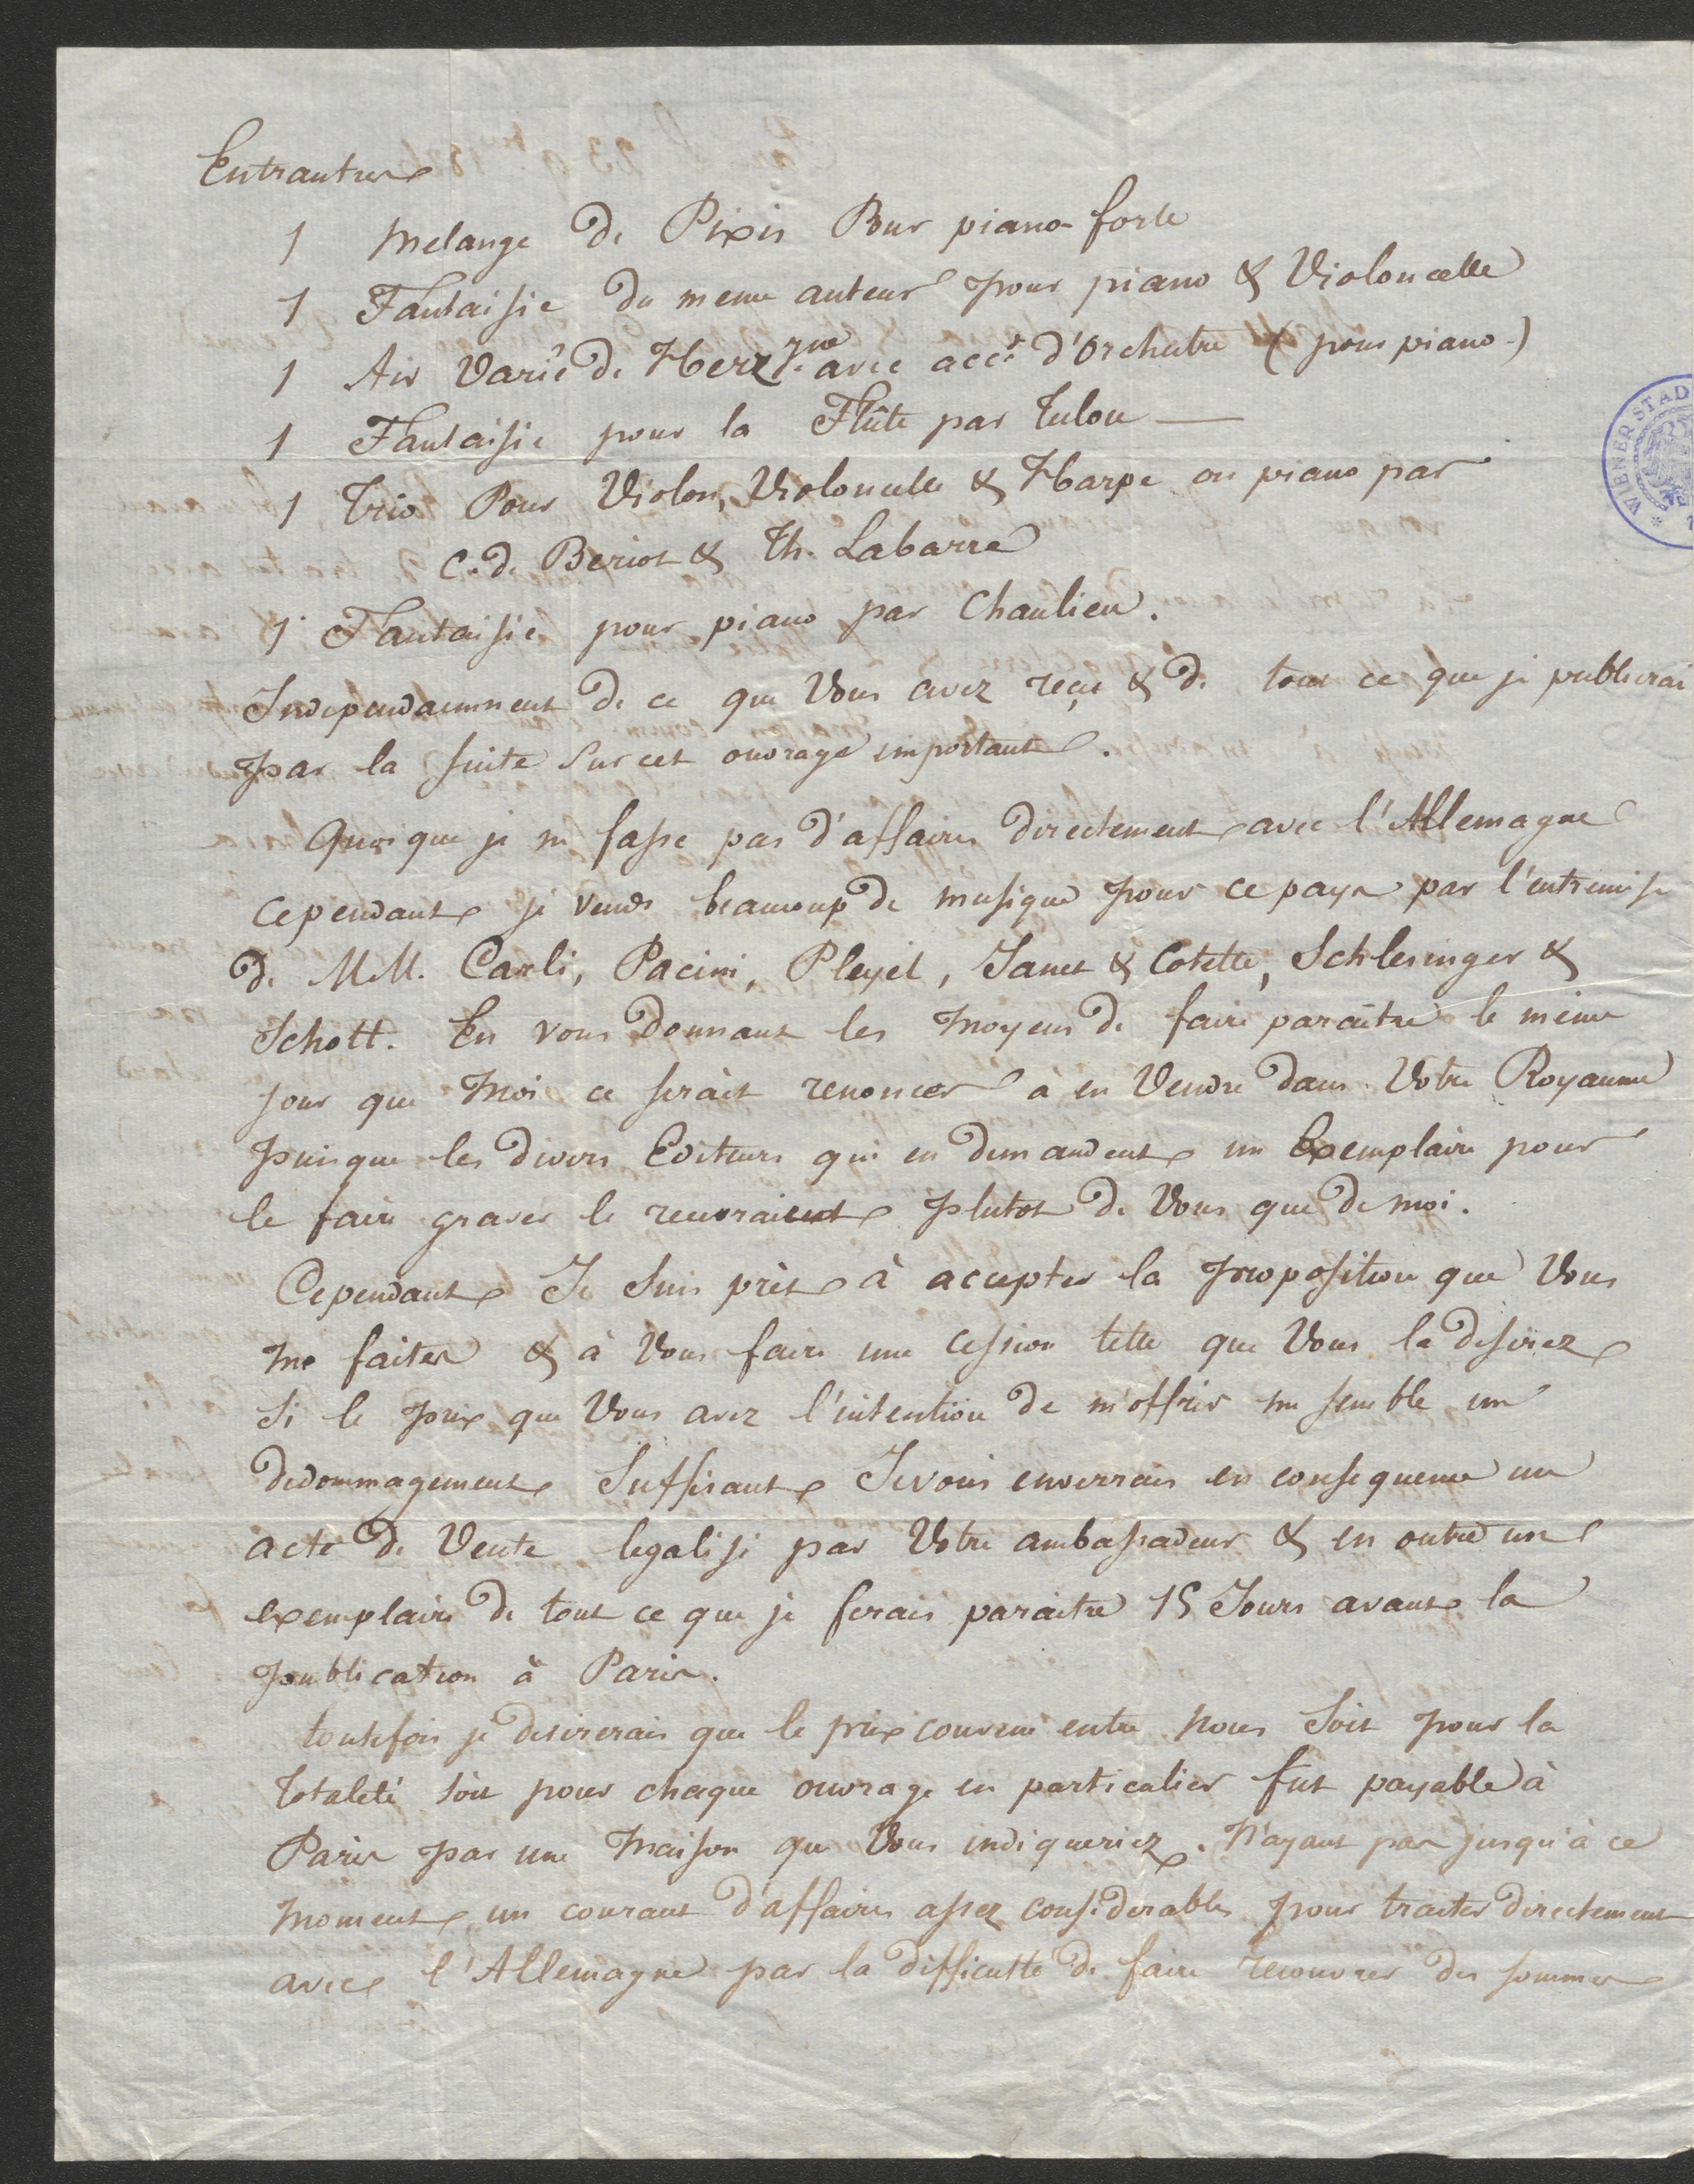 Entrautres
1 Melange de Pixis Pour piano-forte
1 Fantaisie du meme auteur pour piano & Violoncelle
1 Air Varié de Herz avec acct d'Orchestre (pour piano)
1 Fantaisie pour la Flûte par Tulou —
1 Trio Pour Violon, Violoncelle & Harpe ou piano par
C. de Beriot & Th. Labarre
1 Fantaisie pour piano par Chaulieu.
Independamment de ce que Vous avez reçu & de tout ce que je publierai
par la suite sur cet ouvrage important.
Quoique je ne fasse pas d'affaires directement avec l'Allemagne
cependant je vends beaucoup de musique pour ce pays par l'entremise
de MM. Carli, Pacini, Pleyel, Janet & Cotelle, Schlesinger &
Schott. En vous donnant les moyens de faire paraitre le même
jour que Moi ce serait renoncer à en Vendre dans Votre Royaume
puisque les divers Editeurs qui en demandent un Exemplaire pour
le faire graver le recevraient plutot de Vous que de moi.
Cependant Je suis prêt à accepter la proposition que Vous
me faites & à Vous faire une cession telle que Vous la desirez
Si le prix que Vous avez l'intention de m'offrir me semble un
dedommagement Suffisant Je vous enverrais en consequence un
acte de Vente legalisé par Votre ambassadeur & en outre un
exemplaire de tout ce que je ferais paraitre 15 Jours avant la
publication à Paris.
toutefois je desirerais que le prix convenu entre nous Soit pour la
totalité soit pour chaque ouvrage en particulier fut payable à
Paris par une Maison que Vous indiqueriez. N'ayant pas jusqu'à ce
moment un courant d'affaires assez considerable pour traiter directement
avec l'Allemagne par la difficulté de faire recouvrer des sommes
WIENER STAD